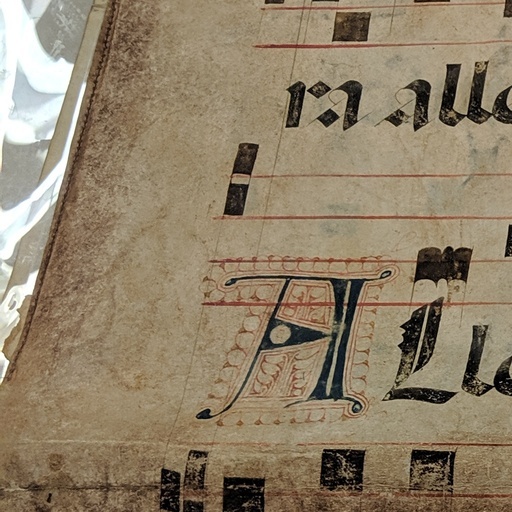 ra alle
All